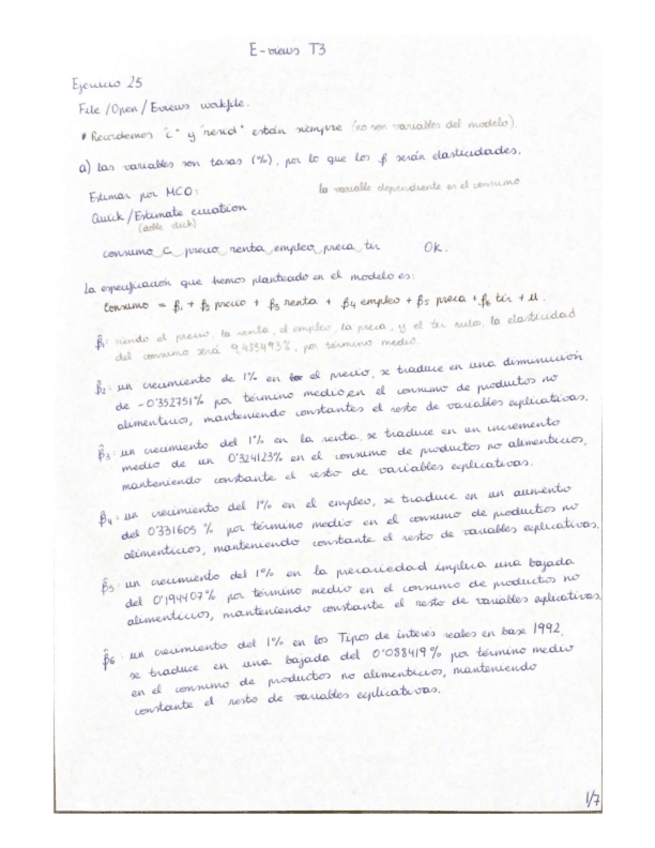 E-views T3
Ejercicio 25
File /Open / Eviews workfile.
* Recordemos "c" y "resid" están siempre (no son variables del modelo).
a) las variables son tasas (%), por lo que los β serán elasticidades.
Estimar por MCO:
la variable dependiente es el consumo
Quick / Estimate equation
(doble click)
consumo c precio renta empleo preca tir OK.
La especificación que hemos planteado en el modelo es:
Consumo = β1 + β2 precio + β3 renta + β4 empleo + β5 preca + β6 tir + u.
β̂1: siendo el precio, la renta, el empleo, la preca, y el tir nulos, la elasticidad
del consumo será %, por término medio.
β̂2: un crecimiento de 1% en el precio, se traduce en una disminución
de -0'352751% por término medio, en el consumo de productos no
alimenticios, manteniendo constantes el resto de variables explicativas.
β̂3: un crecimiento del 1% en la renta, se traduce en un incremento
medio de un 0'324123% en el consumo de productos no alimenticios,
manteniendo constante el resto de variables explicativas.
β̂4: un crecimiento del 1% en el empleo, se traduce en un aumento
del 0'331605 % por término medio en el consumo de productos no
alimenticios, manteniendo constante el resto de variables explicativas.
β̂5: un crecimiento del 1% en la precariedad implica una bajada
del 0'194407% por término medio en el consumo de productos no
alimenticios, manteniendo constante el resto de variables explicativas
β̂6: un crecimiento del 1% en los Tipos de interés reales en base 1992,
se traduce en una bajada del 0'088419% por término medio
en el consumo de productos no alimenticios, manteniendo
constante el resto de variables explicativas.
1/7